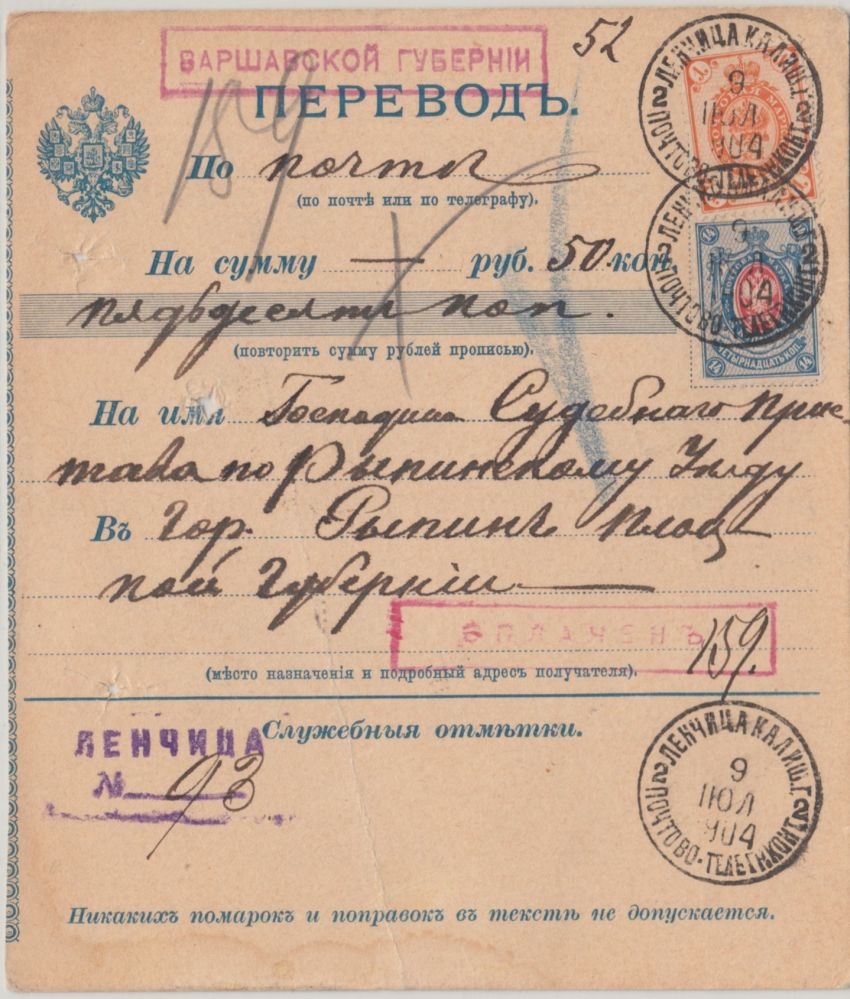 ВАРШАВСКОЙ ГУБЕРНІИ
52
ПЕРЕВОДЪ.
159
По почтѣ
(по почтѣ или по телеграфу).
На сумму — руб. 50 коп
пядьдесяти коп.
(повторить сумму рублей прописью).
На имя Господина Судебнаго При-
става по Рыпинскому Уѣзду
Въ Гор. Рыпинъ Плоц
кой Губерніи
ОПЛАЧЕНЪ
159.
(мѣсто назначенія и подробный адресъ получателя).
Служебныя отмѣтки.
ЛЕНЧИЦА
№ 93
Никакихъ помарокъ и поправокъ въ текстѣ не допускается.
ЛЕНЧИЦА КАЛИШ. Г.
9
ІЮЛ
904
ПОЧТОВО-ТЕЛЕГ. КОНТ.
1
ЛЕНЧИЦА
9
04
ПОЧТОВО-ТЕЛЕГ. КОНТ.
14
ЧЕТЫРНАДЦАТЬ КОП.
14 14
ЛЕНЧИЦА КАЛИШ. Г.
9
ІЮЛ
904
ПОЧТОВО-ТЕЛЕГ. КОНТ.